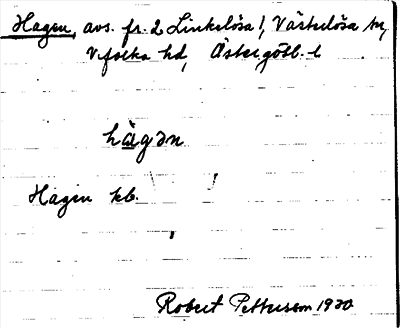 Hagen, avs. fr. 2 Linkelösa 1, Västerlösa sn,
Vifolka hd, Östergötl. l
hàgən
Hagen kb.
Robert Pettersson 1930